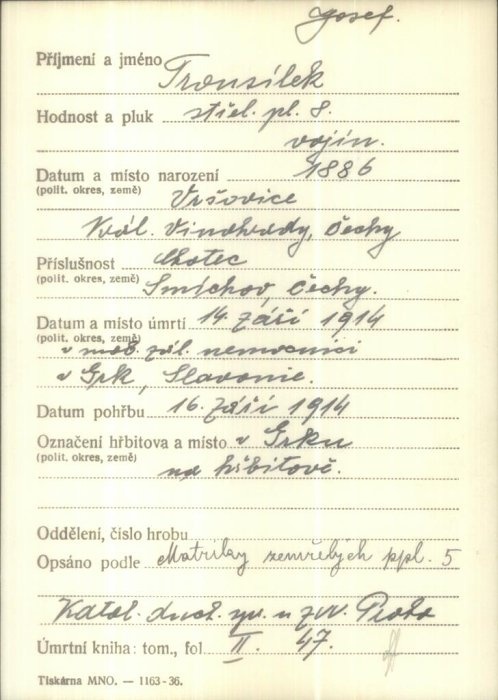 Josef.
Příjmení a jméno Tronsílek
Hodnost a pluk střel. pl. 8.
vojín.
Datum a místo narození 1886
(polit. okres, země) Vršovice
Král. Vinohrady, Čechy
Příslušnost Chotec
(polit. okres, země) Smíchov, Čechy.
Datum a místo úmrtí 14. září 1914
(polit. okres, země)
v mob. zál. nemocnici
v Grk, Slavonie.
Datum pohřbu 16. září 1914
Označení hřbitova a místo v Grku
(polit. okres, země)
na hřbitově.
Oddělení, číslo hrobu
Opsáno podle Matriky zemřelých ppl. 5
Katol. duch. spr. u
Úmrtní kniha: tom., fol. II. 47.
Tiskárna MNO. — 1163-36.